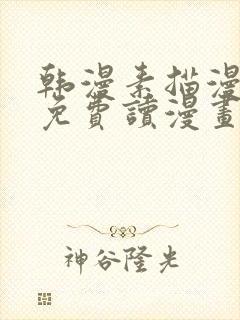 韩漫素描漫
免費讀漫畫
神谷隆光